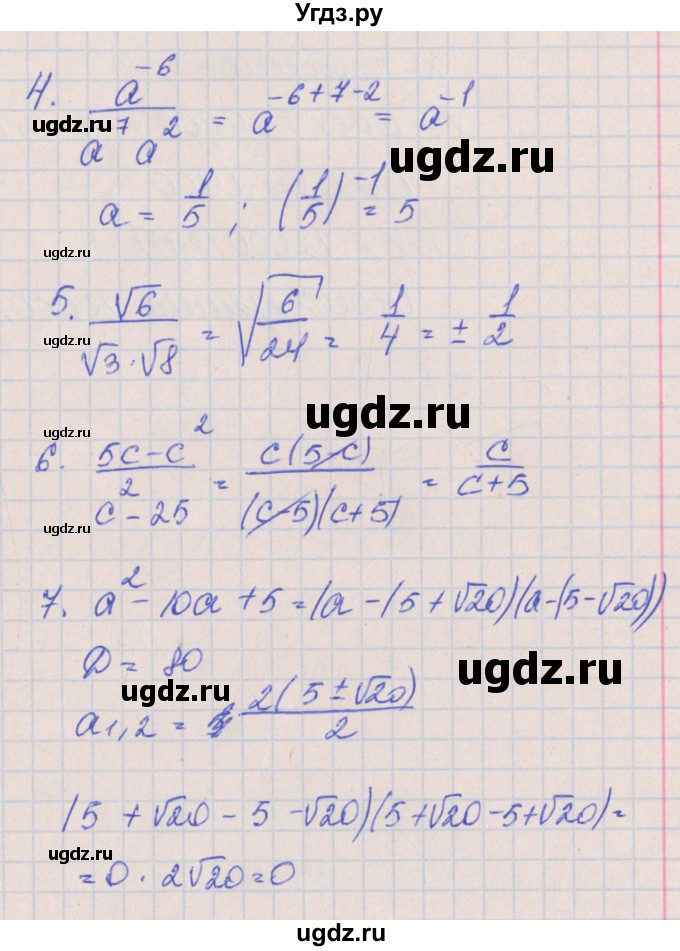 Угдз.ру
4. a^-6 / a^7 a^2 = a^-6+7-2 = a^-1
ugdz.ru
ugdz.ru
a = 1/5 ; (1/5)^-1 = 5
ugdz.ru
5. √6 / √3·√8 = √6/24 = 1/4 = ± 1/2
ugdz.ru
ugdz.ru
6. 5c-c^2 / c^2-25 = c(5-c) / (c-5)(c+5) = c / c+5
ugdz.ru
7. a^2 - 10a + 5 = (a - (5 + √20)(a-(5-√20))
ugdz.ru
D = 80
ugdz.ru
ugdz.ru
a1,2 = 2(5 ± √20) / 2
(5 + √20 - 5 - √20)(5 + √20 - 5 + √20) =
ugdz.ru
= 0 · 2√20 = 0
ugdz.ru